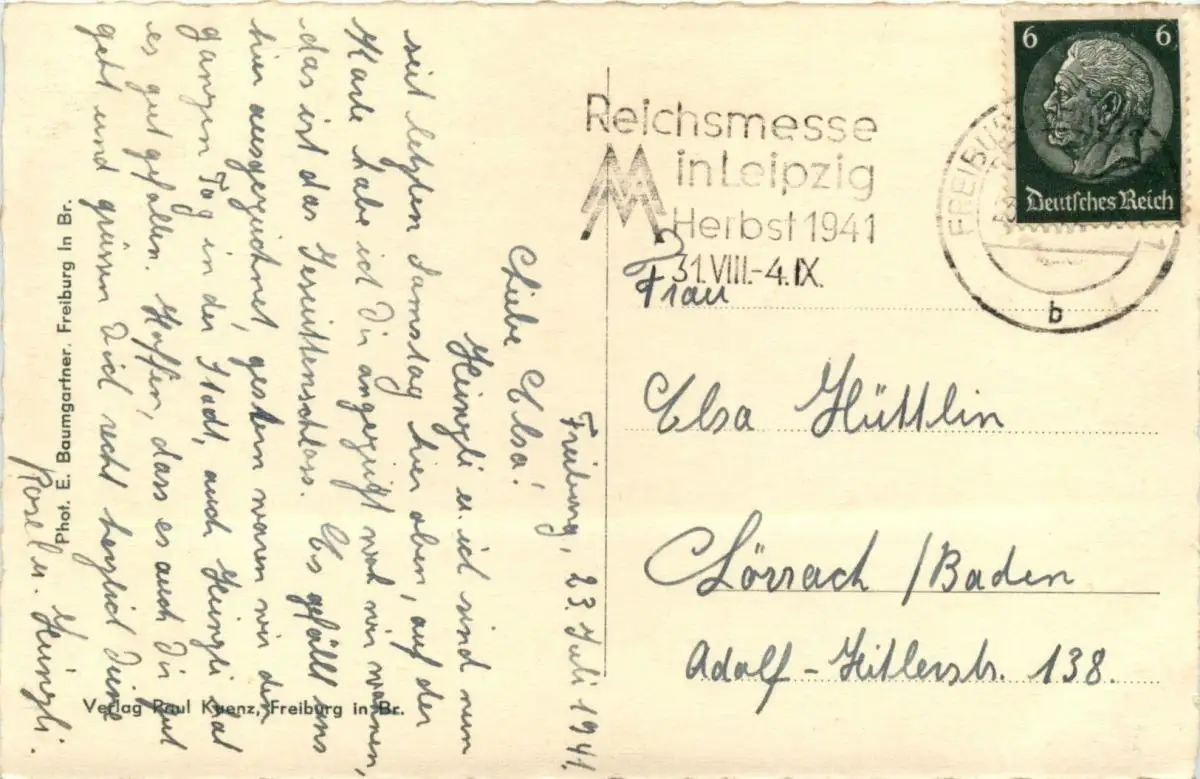 Freiburg, 23. Juli 1941.
Liebe Elsa!
Heinzli u. ich sind nun
seit letzten Samstag hier oben, auf der
Karte habe ich Dir angezeigt wo wir wohnen,
das ist das Jesuitenschloss. Es gefällt uns
hier ausgezeichnet, gestern waren wir den
ganzen Tag in der Stadt, auch Heinzli hat
es gut gefallen. Hoffen, dass es auch Dir gut
geht und grüssen Dich recht herzlich Deine
Rosel u. Heinzli.
Phot. E. Baumgartner, Freiburg in Br.
Verlag Paul Kuenz, Freiburg in Br.
Reichsmesse
in Leipzig
Herbst 1941
31.VIII.-4.IX.
FREIBU
b
6 6
Deutsches Reich
Frau
Elsa Hüttlin
Lörrach / Baden
Adolf-Hitlerstr. 138.